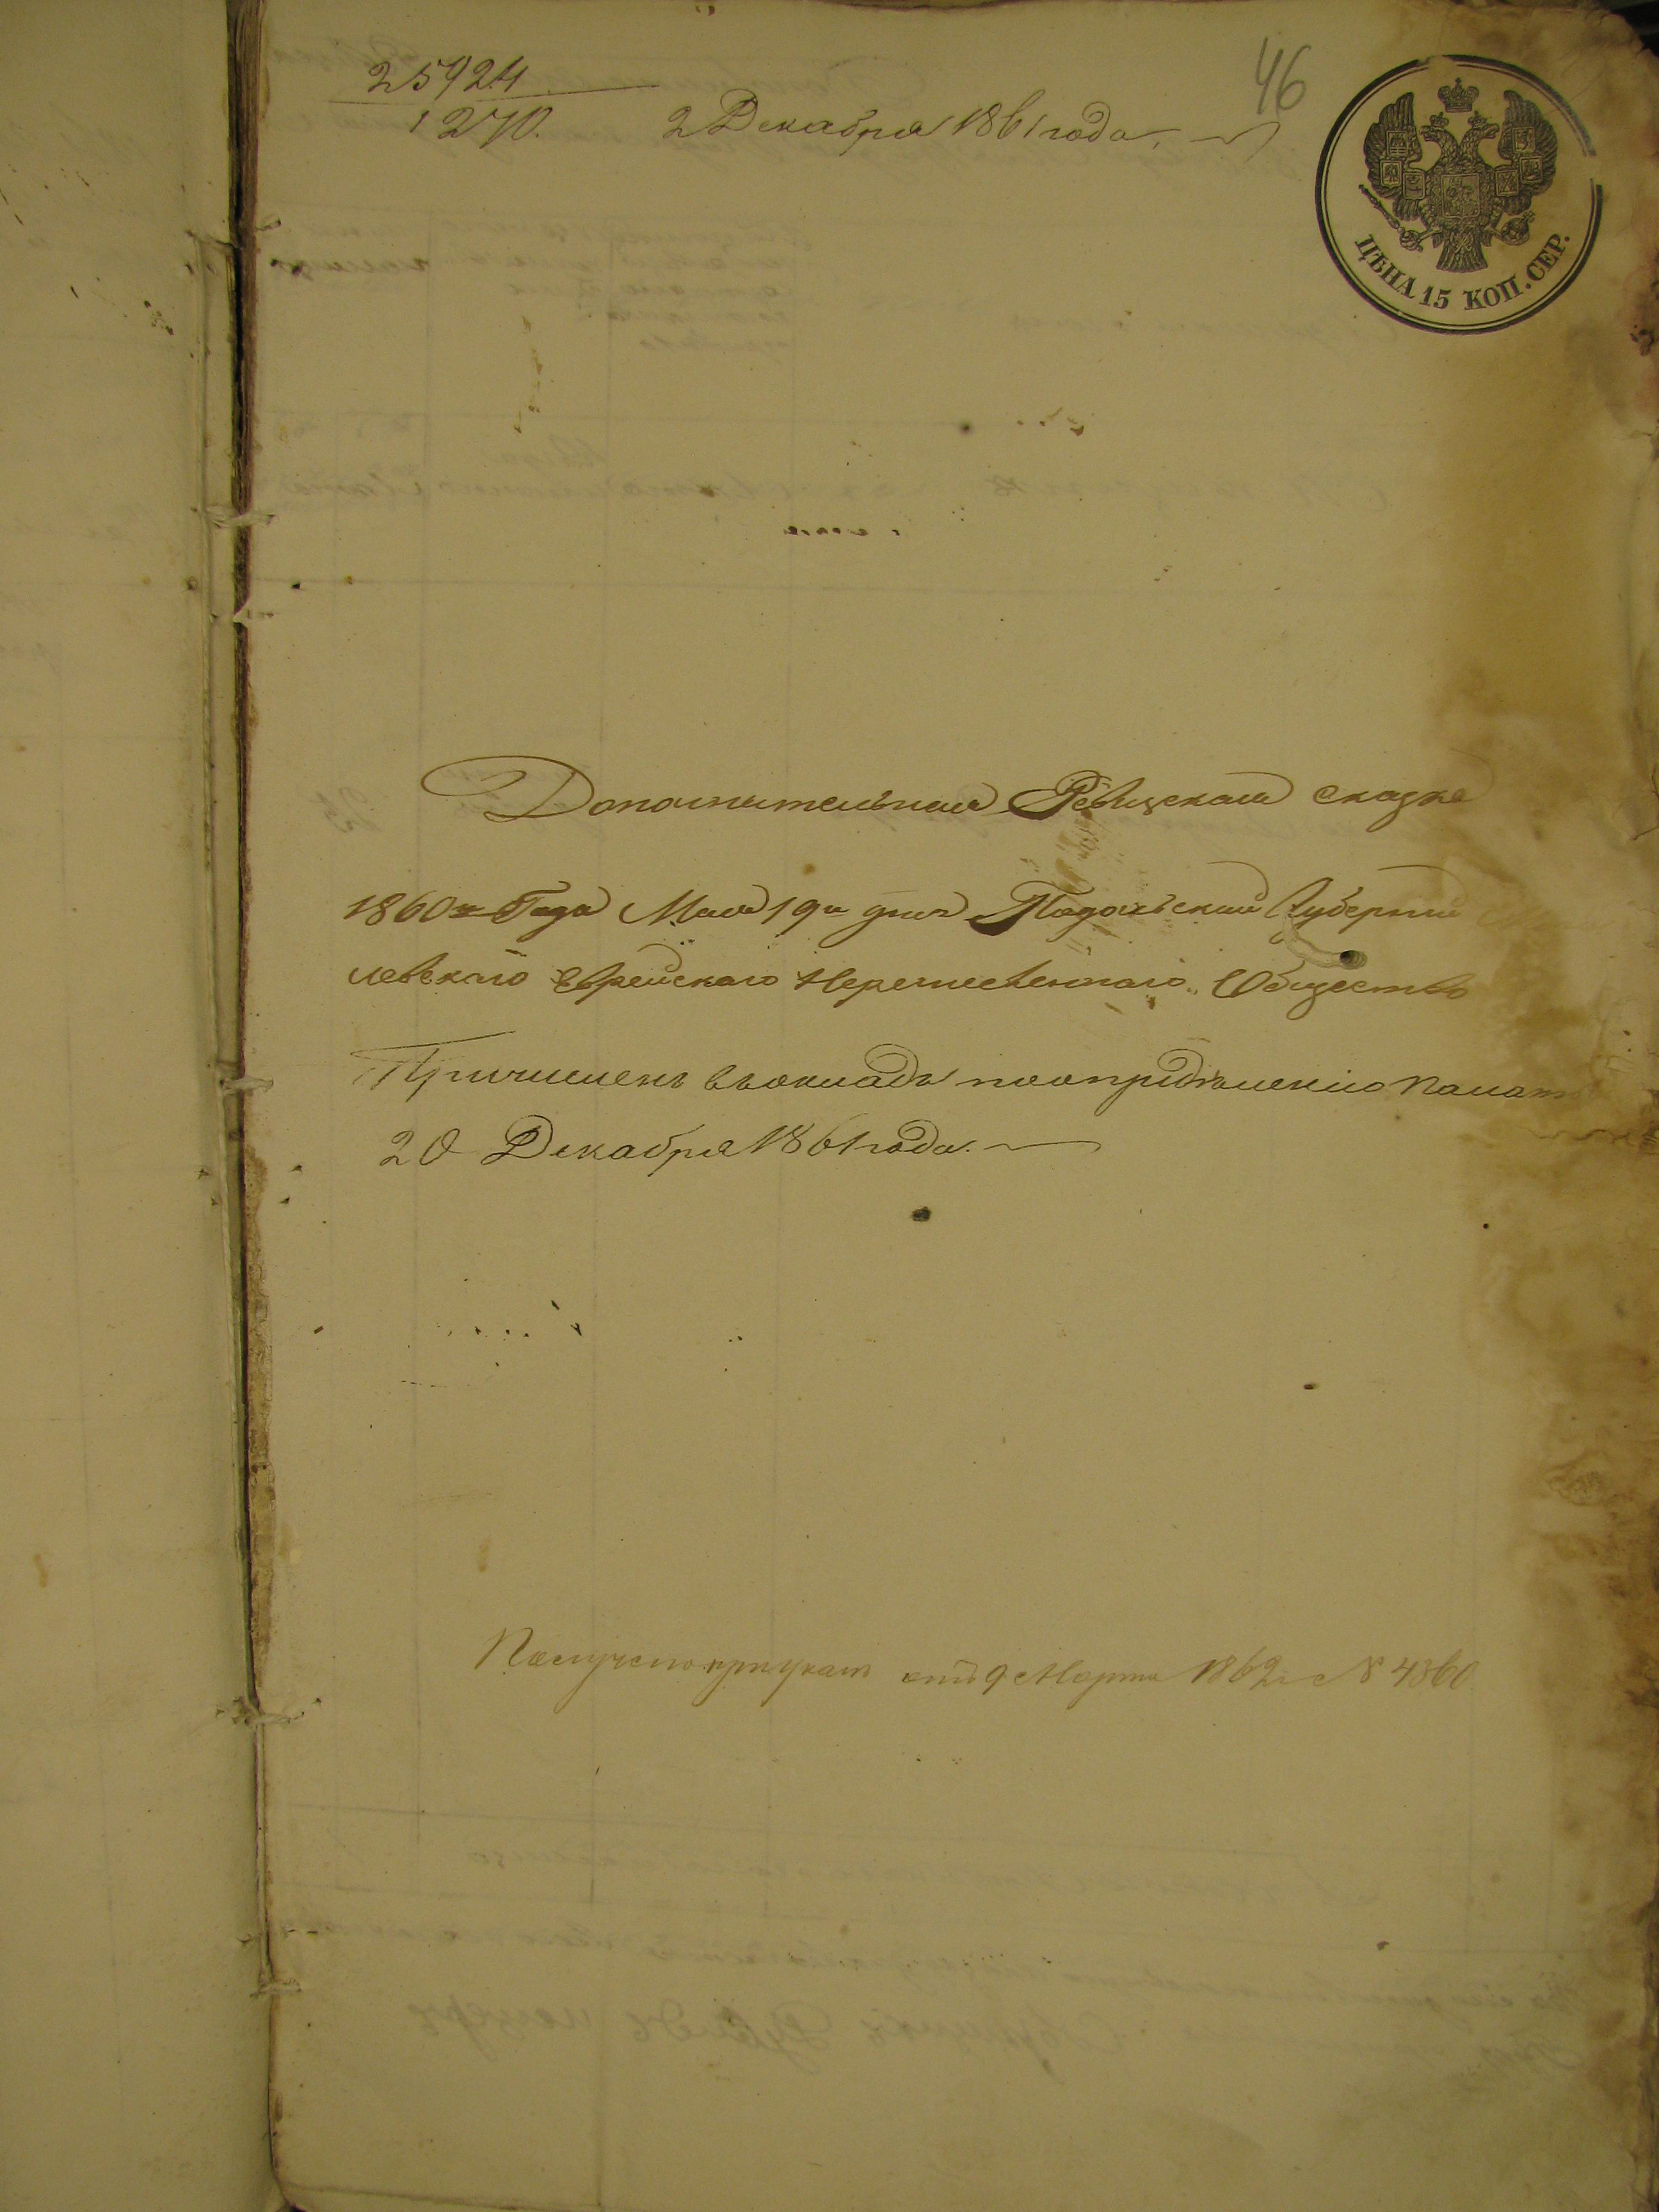 25924
1270.
2 Декабря 1861 года.
46
ЦѢНА 15 КОП. СЕР.
Дополнительная Ревизская сказка
1860го Года Мая 19го дня Подольской Губернии
левскаго Еврейскаго Общества
Причисленъ въ окладъ по опредѣленію Палат
20 Декабря 1861 года.
Получено при указѣ отъ 9 Марта 1862 г № 4360